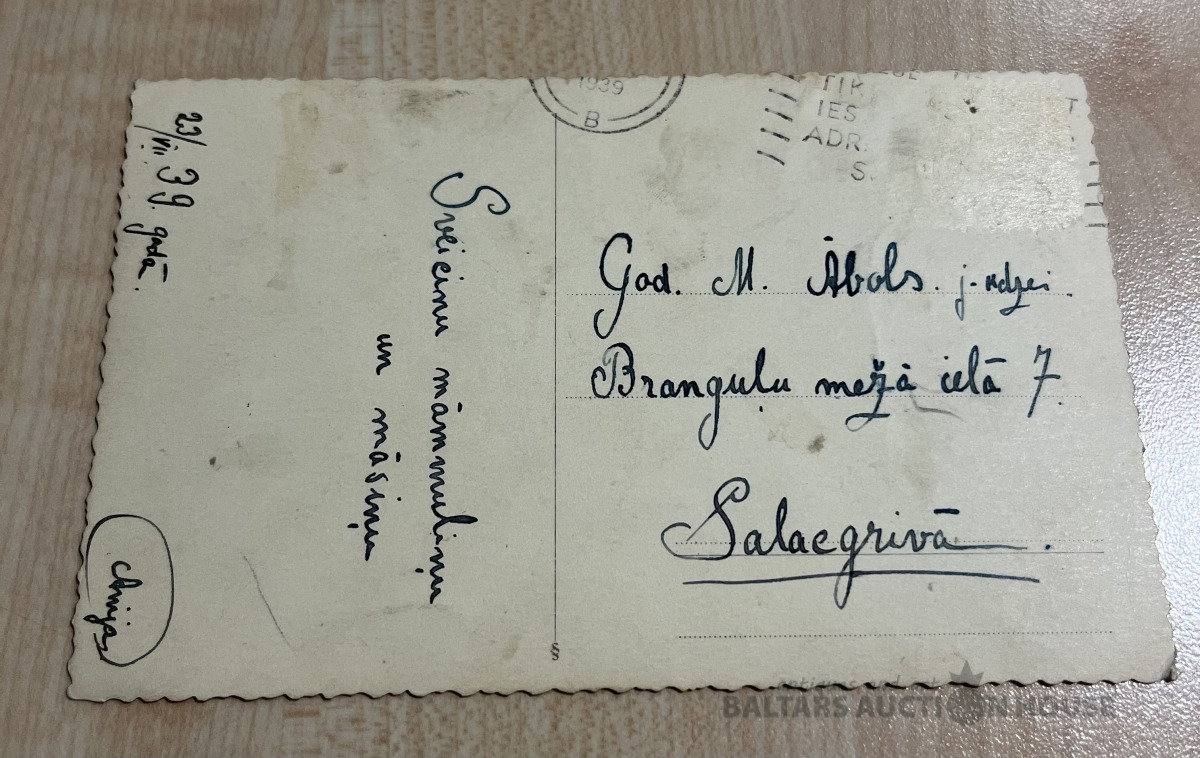 23/VII 39. gadā.
Sveicinu māmmuliņu
un māsiņu
Anija
1939
B
TIK
IES
ADR.
S.
God. M. Ābols. j-kdzei
Branguļu mežā ielā 7.
Salacgrīvā.
§
BALTARS AUCTION HOUSE